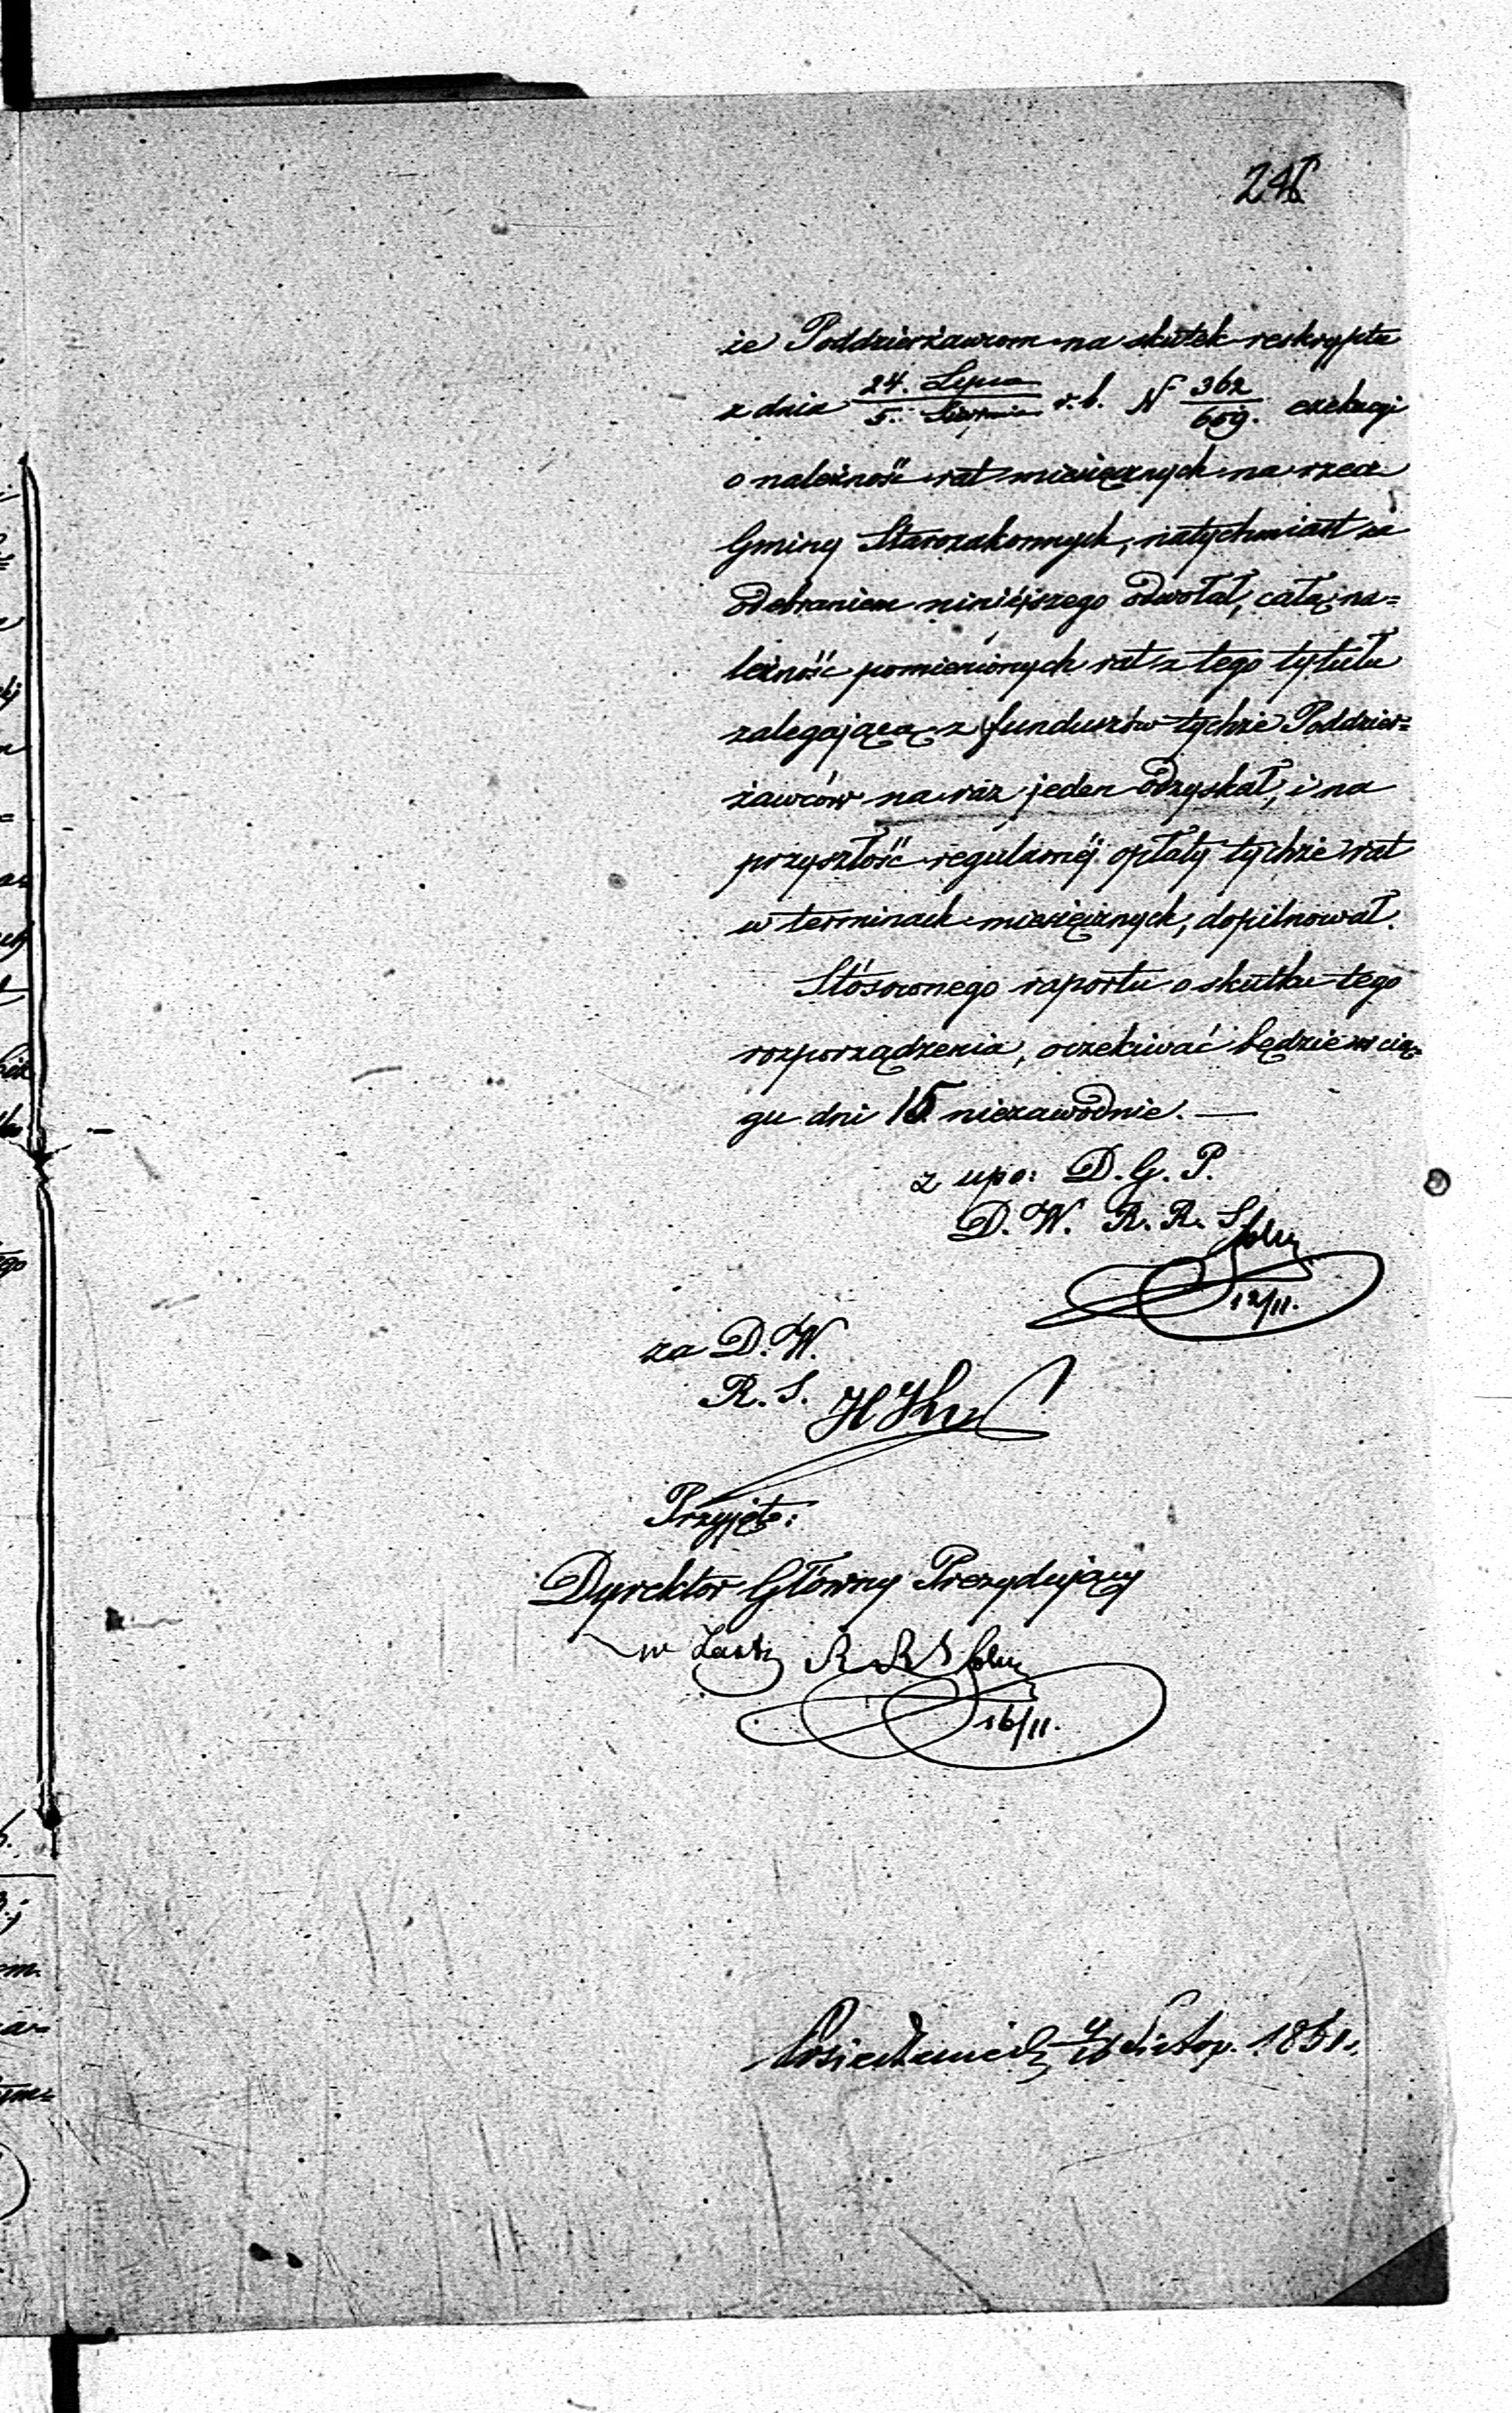 że Poddzierżawcom na skutek reskryptu
z dnia 24. Lipca / 5. Sierpnia r. b. N 362/609. exekucyi
o należność rat miesięcznych na rzecz
Gminy Starozakonnych, natychmiast za
odebraniem niniéjszego odwołał, całą na=
leżność pomienionych rat z tego tytułu
zalegającą z funduszów tychże Poddzier=
żawców na raz jeden odzyskał, i na
przyszłość regularnéj opłaty tychże rat
w terminach miesięcznych, dopilnował.
Stósownego raportu o skutku tego
rozporządzenia, oczekiwać będzie w cią=
gu dni 15 niezawodnie. —
z upo: D. G. P.
D. W. R. R. S.
12/11.
za D. W.
R. S.
Przyjęto:
Dyrektor Główny Prezydujący
w Zast: R. R. S.
16/11.
Listop. 1851 r.